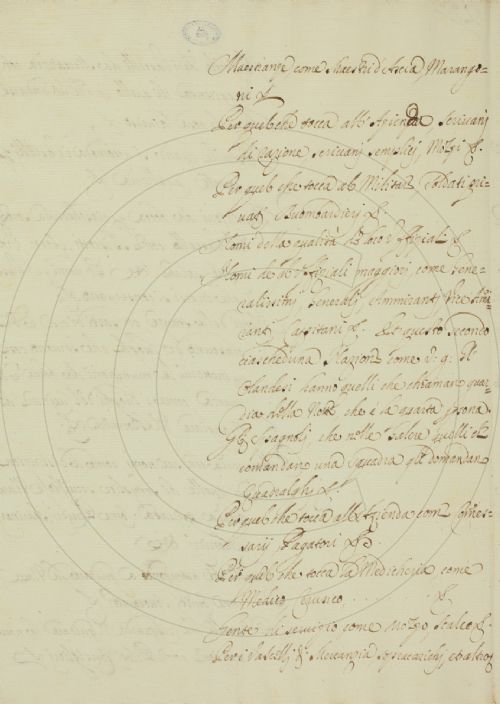 Maestranze come Maestri d'Ascia, Marango-
ni &.
Per quel che tocca all' Azienda Scrivani
di razione scrivani semplici, Mozzi &.
Per quel che tocca al Militar Soldati pri-
uati Buombardieri &.
Nomi della qualità de loro Offiziali &.
Nomi de Offiziali maggiori, come Gene-
ralissimi, Generali, Ammiranti, Vice Ami-
ranti, Capitani &. et questo secondo
ciascheduna Nazione come v: g: gl'
Olandesi hanno quelli che chiamano quar-
dia della Notte che è la quarta persona.
Gli Spagnoli, che nelle Galere quelli che
comandano una Squadra gli domandano
Quadralghi &.
Per quel che tocca all' Azienda come Comes-
sarij Pagatori &.
Per quel che tocca la Medicheria come
Medico Cerusico . . . &.
Gente di servizio come Mozzo Scalco &.
Per i Vascelli di Mercanzia sopracarichi, et altro